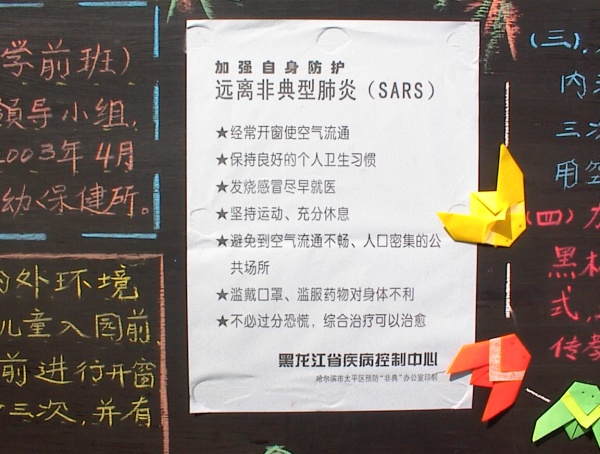 学前班）
领导小组,
2003年4月
幼保健所。
外环境
儿童入园前,
前进行开窗
三次,并有
加强自身防护
远离非典型肺炎（SARS）
★经常开窗使空气流通
★保持良好的个人卫生习惯
★发烧感冒尽早就医
★坚持运动、充分休息
★避免到空气流通不畅、人口密集的公
共场所
★滥戴口罩、滥服药物对身体不利
★不必过分恐慌，综合治疗可以治愈
黑龙江省疾病控制中心
哈尔滨市太平区预防“非典”办公室印制
（三）.
内
三次
用空
（四）
黑木
式,
传孝